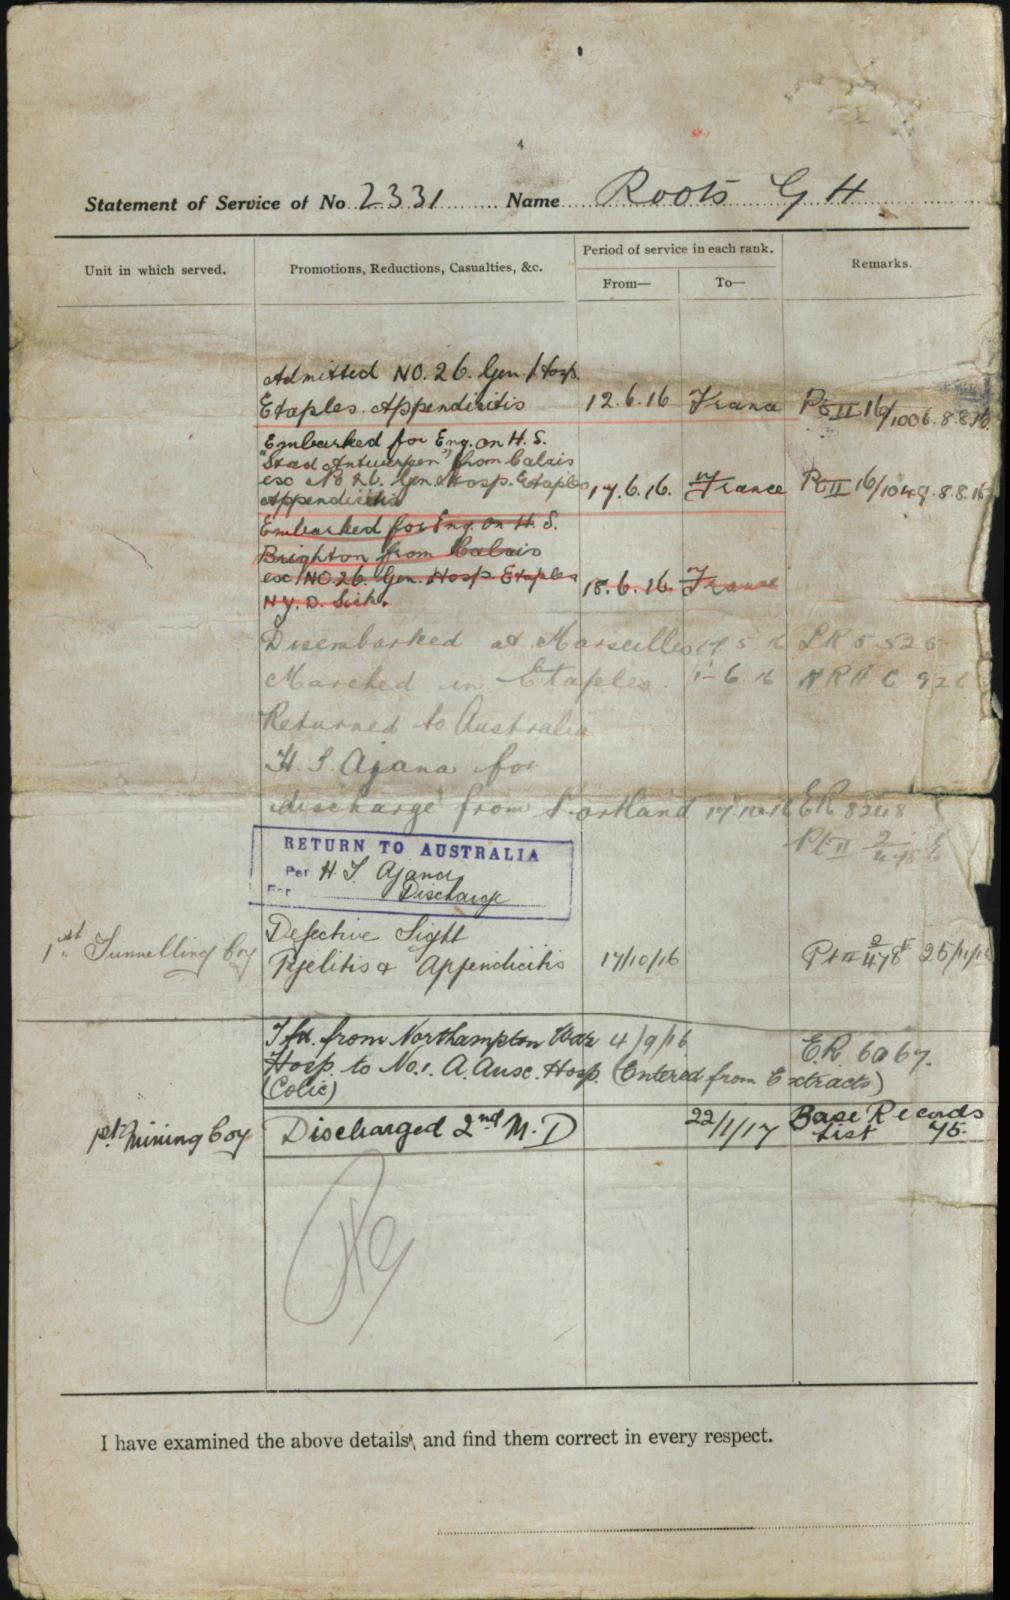 4
Statement of Service of No 2331 Name Roots G H
Unit in which served.
Promotions, Reductions, Casualties, &c.
Period of service in each rank.
From—
To—
Remarks.
Admitted NO. 26. Gen Hosp.
Etaples. Appendicitis 12.6.16 France Pt II 16/1006. 8.8.16.
Embarked for Eng. on H.S.
"Stad Antwerpen" from Calais
exc No 26. Gen Hosp. Etaples
Appendicitis 17.6.16. France Pt II 16/1049. 8.8.16
Embarked for Eng. on H.S.
Brighton from Calais
exc NO.26. Gen. Hosp Etaples
N.Y.D. Sick. 18.6.16. France
Disembarked at Marseilles 5 16 LR 5 525
Marched in Etaples. 1-6.16
Returned to Australia
H.S Ajana for
discharge from Portland 17.10.16 ER 8248
Pt II
RETURN TO AUSTRALIA
Per H.T Ajana
For Discharge
Defective Sight
1st Tunnelling Coy Pyelitis & Appendicitis 17/10/16 Pt II 25/11/16
Tfd. from Northampton War 4/9/16
Hosp. to No.1. A. Aust. Hosp. (Entered from Extracts) E.R. 6067.
(Colic)
1st Mining Coy Discharged 2nd M.D 22/1/17 Base Records
List 75.
I have examined the above details, and find them correct in every respect.